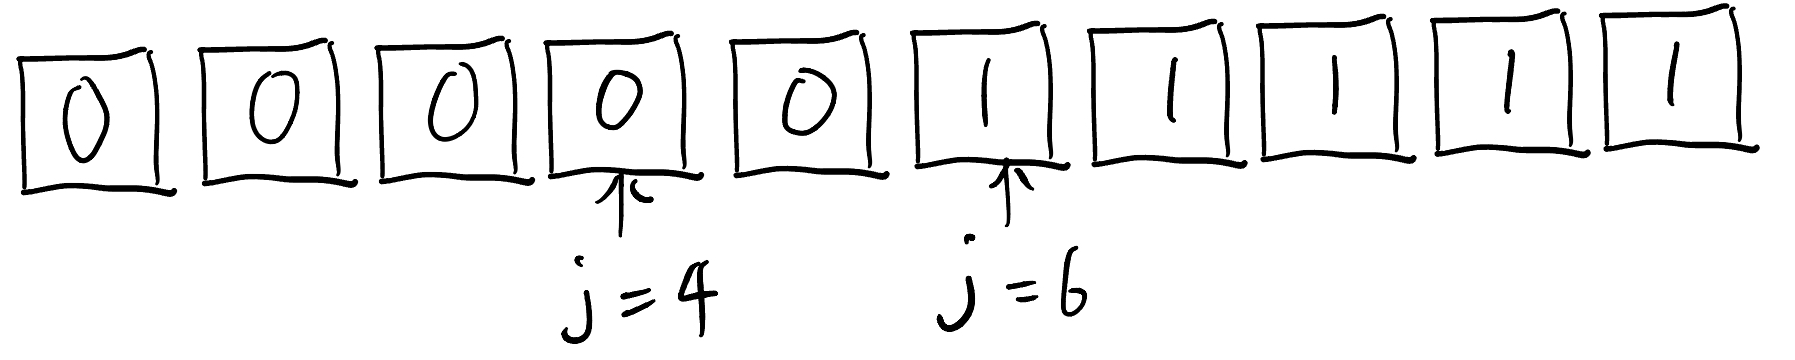 0 0 0 0 0 1 1 1 1 1
j=4 j=6